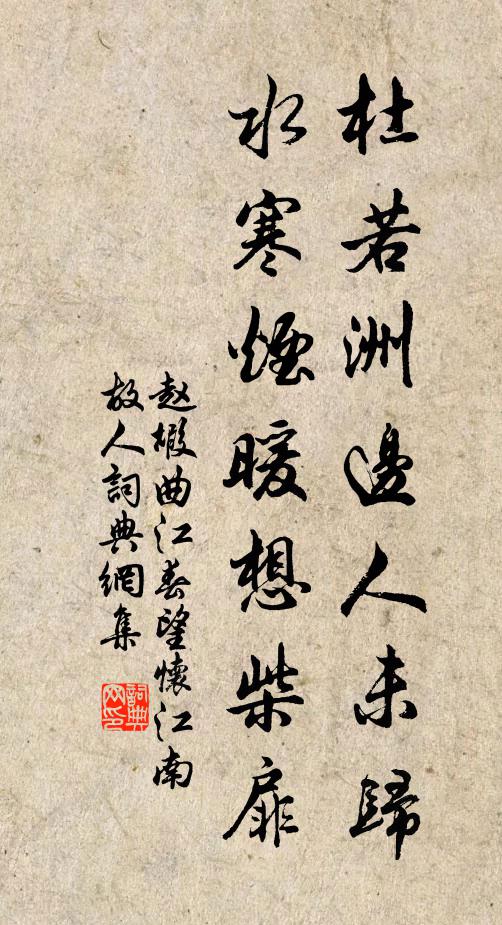 杜若洲邊人未歸
水寒煙暖想柴扉
赵嘏曲江春望懷江南
故人詞典網集
詞典网印